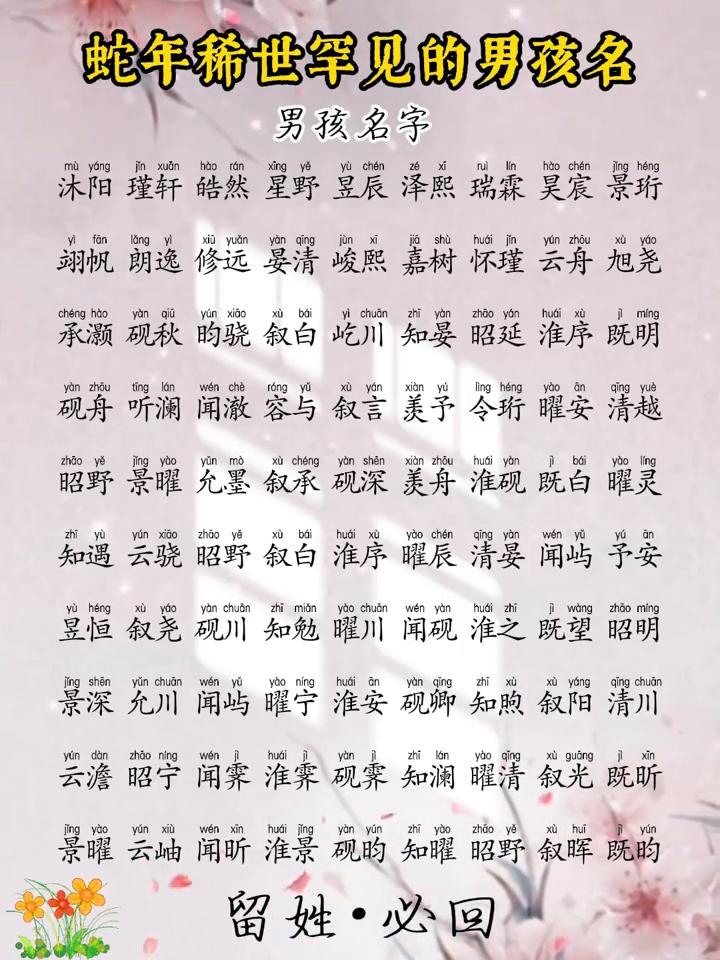 蛇年稀世罕见的男孩名
男孩名字
mù yáng jǐn xuān hào rán xīng yě yù chén zé xī ruì lín hào chén jǐng héng
沐阳 瑾轩 皓然 星野 昱辰 泽熙 瑞霖 昊宸 景珩
yì fān lǎng yì xiū yuǎn yàn qīng jùn xī jiā shù huái jǐn yún zhōu xù yáo
翊帆 朗逸 修远 晏清 峻熙 嘉树 怀瑾 云舟 旭尧
chéng hào yàn qiū yún xiāo xù bái yì chuān zhī yàn zhāo yán huái xù jì míng
承灏 砚秋 昀骁 叙白 屹川 知晏 昭延 淮序 既明
yàn zhōu tīng lán wén chè róng yǔ xù yán xiàn yú lìng héng yào ān qīng yuè
砚舟 听澜 闻澈 容与 叙言 羡予 令珩 曜安 清越
zhāo yě jǐng yào yǔn mò xù chéng yàn shēn xiàn zhōu huái yàn jì bái yào líng
昭野 景曜 允墨 叙承 砚深 羡舟 淮砚 既白 曜灵
zhī yù yún xiāo zhāo yě xù bái huái xù yào chén qīng yàn wén yǔ yú ān
知遇 云骁 昭野 叙白 淮序 曜辰 清晏 闻屿 予安
yù héng xù yáo yàn chuān zhī miǎn yào chuān wén yàn huái zhī jì wàng zhāo míng
昱恒 叙尧 砚川 知勉 曜川 闻砚 淮之 既望 昭明
jǐng shēn yǔn chuān wén yǔ yào níng huái ān yàn qīng zhī xù xù yáng qīng chuān
景深 允川 闻屿 曜宁 淮安 砚卿 知煦 叙阳 清川
yún dàn zhāo níng wén jì huái jì yàn jì zhī lán yào qīng xù guāng jì xīn
云澹 昭宁 闻霁 淮霁 砚霁 知澜 曜清 叙光 既昕
jǐng yào yún xiù wén xīn huái jǐng yàn yún zhī yào zhāo yě xù huī jì yún
景曜 云岫 闻昕 淮景 砚昀 知曜 昭野 叙晖 既昀
留姓·必回